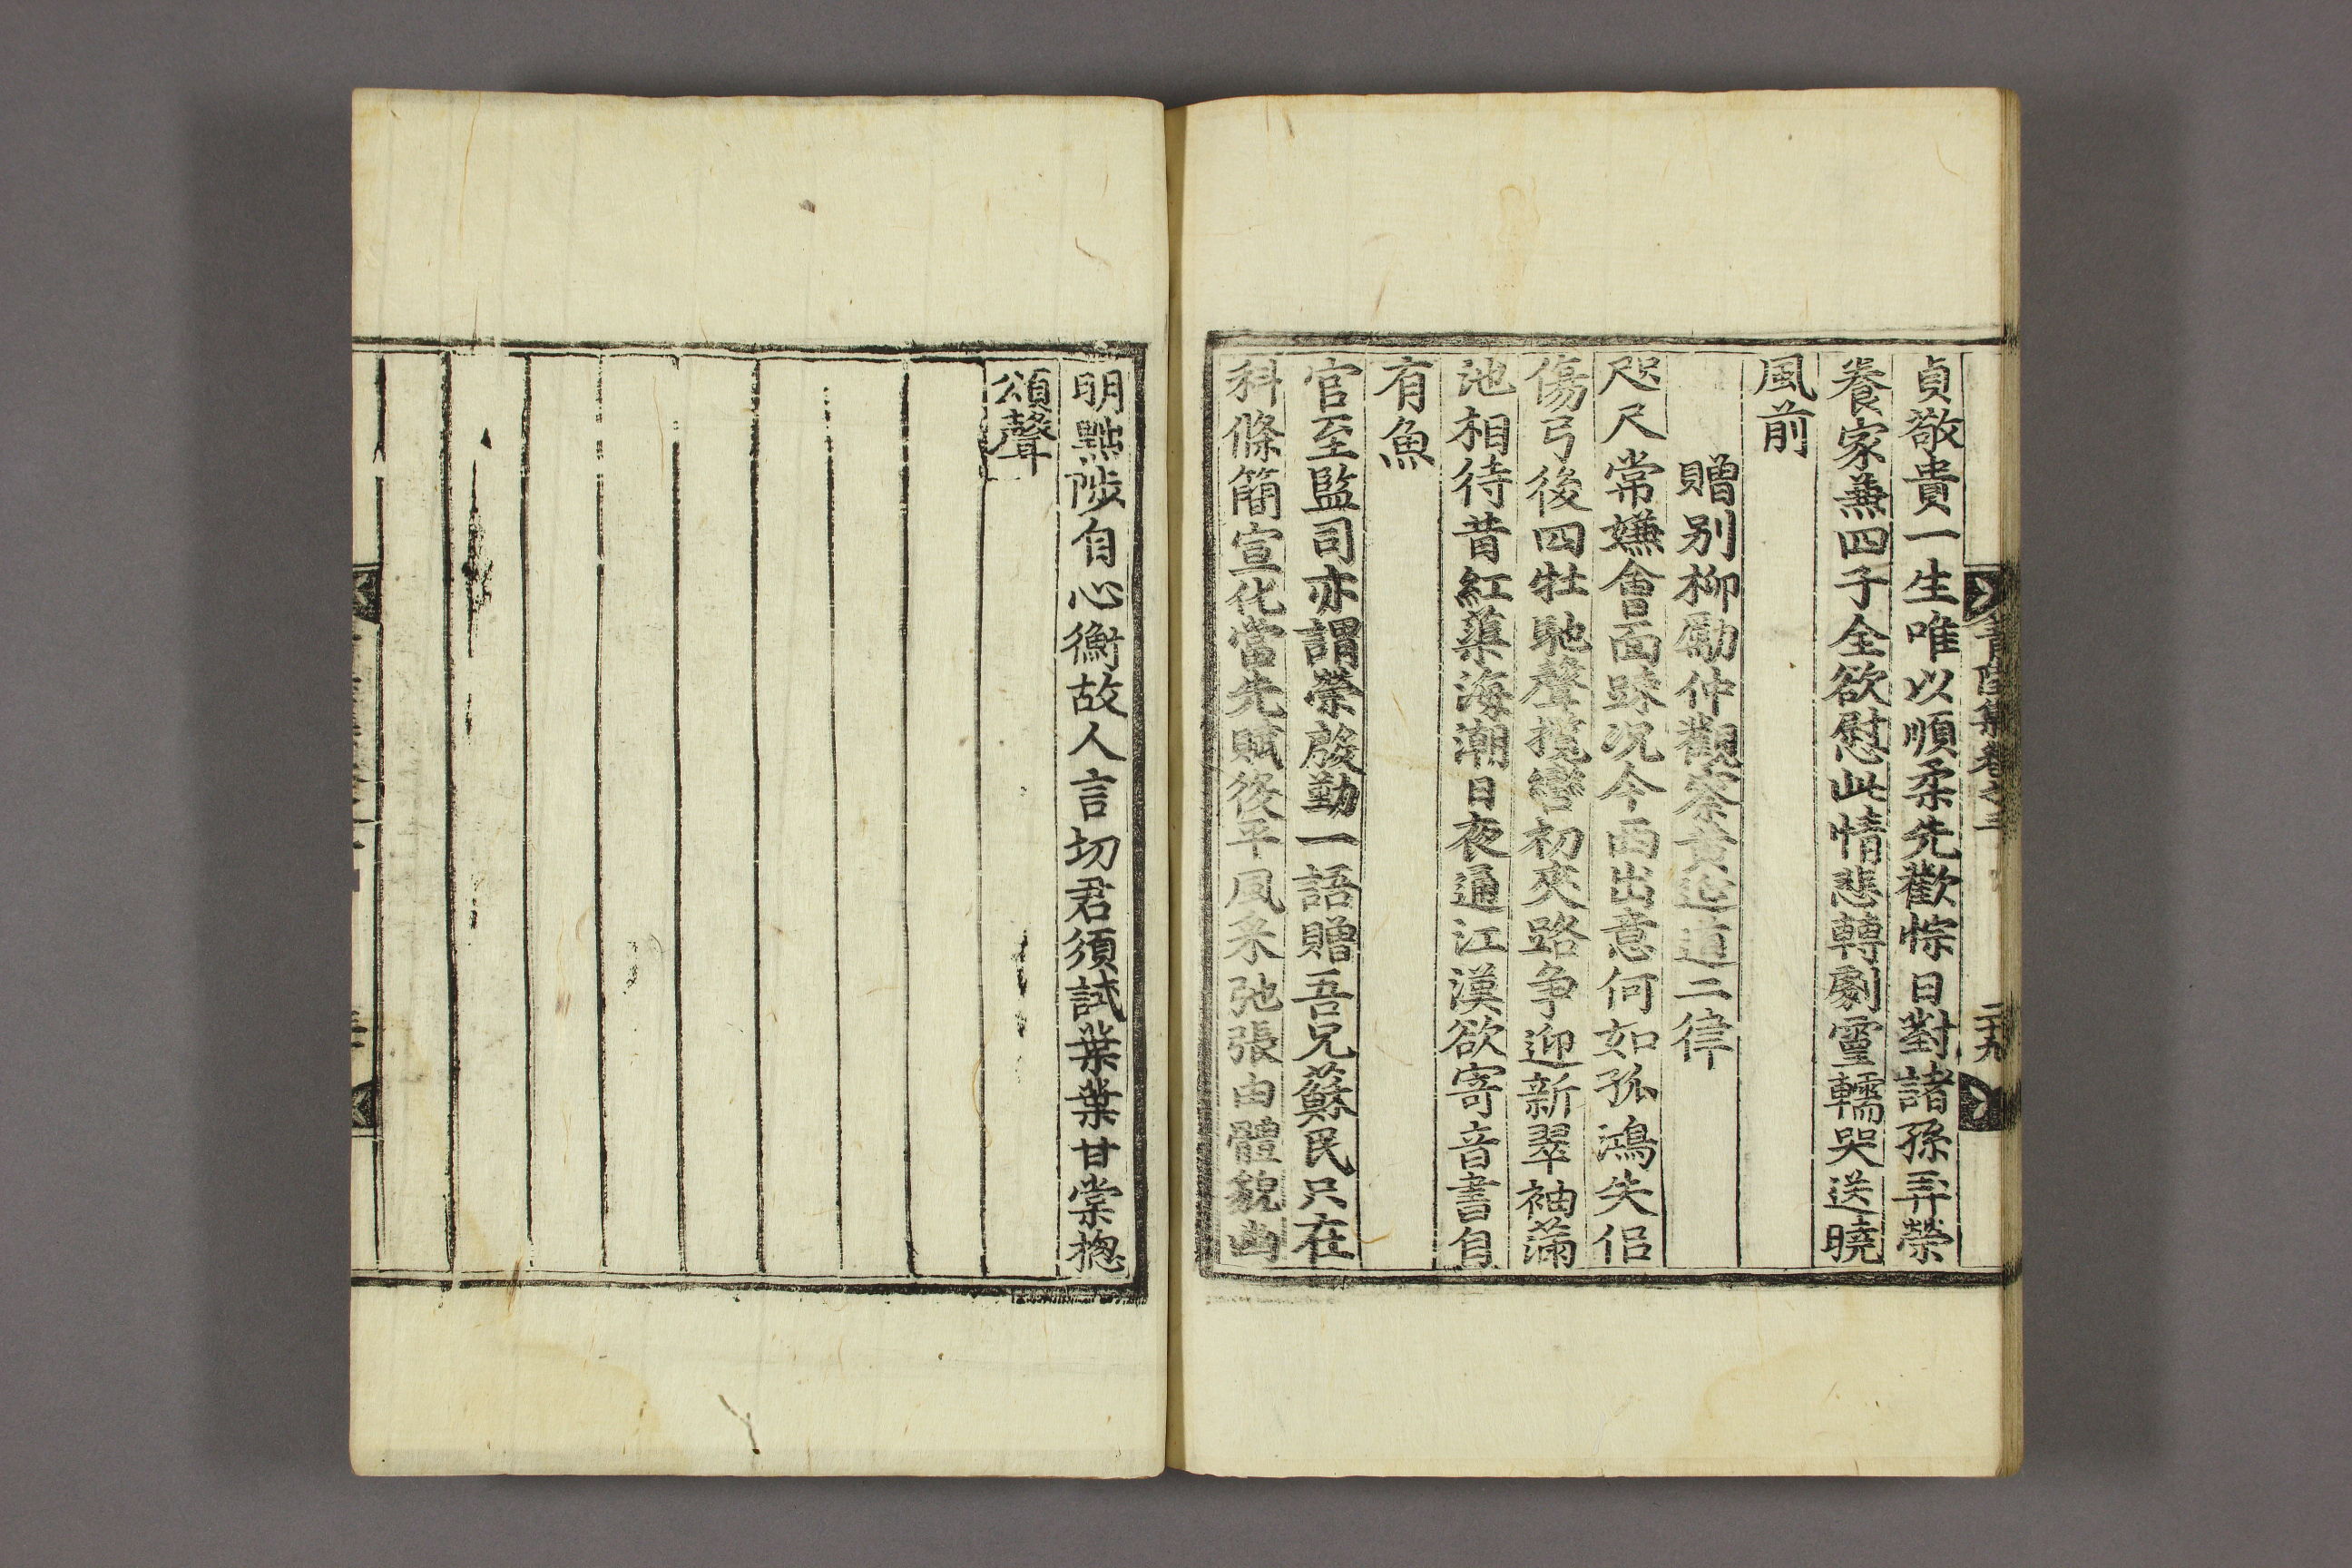 貞敬貴一生唯以順柔先歡悰日對諸孫弄榮
養家兼四子全欲慰此情悲轉劇靈轜哭送曉
風前
贈別柳勵仲觀察黃延道二律
咫尺常嫌會面踈況今西出意何如孤鴻失侶
傷弓後四牡馳聲攬轡初夾路爭迎新翠袖滿
池相待昔紅蕖海潮日夜通江漢欲寄音書自
有魚
官至監司亦謂榮殷勤一語贈吾兄蘇民只在
科條簡宣化當先賦後平風采弛張由體貌幽
明黜陟自心衡故人言切君須試葉葉甘棠摠
頌聲